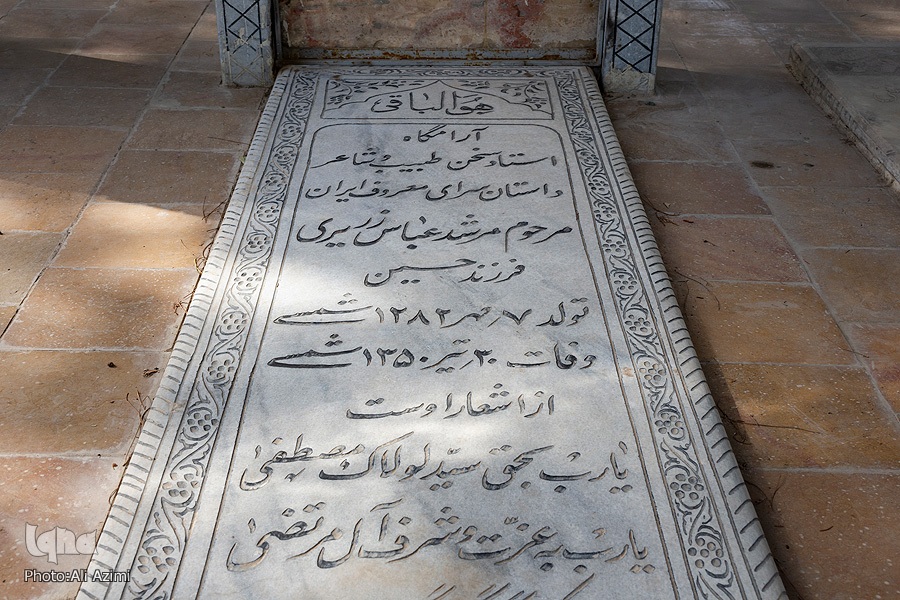 هوالباقی
آرامگاه
استاد سخن طبیب شاعر
داستان سرای معروف ایران
مرحوم مرشد عباس زریری
فرزند حسین
تولد ۷ مهر ۱۲۸۲ شمسی
وفات ۲۰ تیر ۱۳۵۰ شمسی
از اشعار اوست
یارب بحق سید لولاک مصطفی
یارب به عزت و شرف آل مرتضی
Iqna
Photo:Ali Azimi